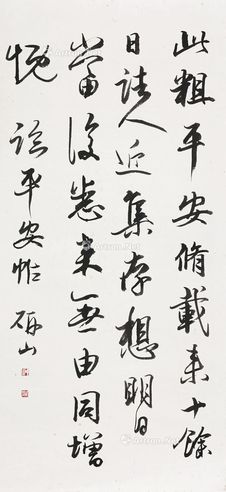 此粗平安脩載来十餘
日諸人近集存想明日
當復悉来無由同增
慨 臨平安帖 研山